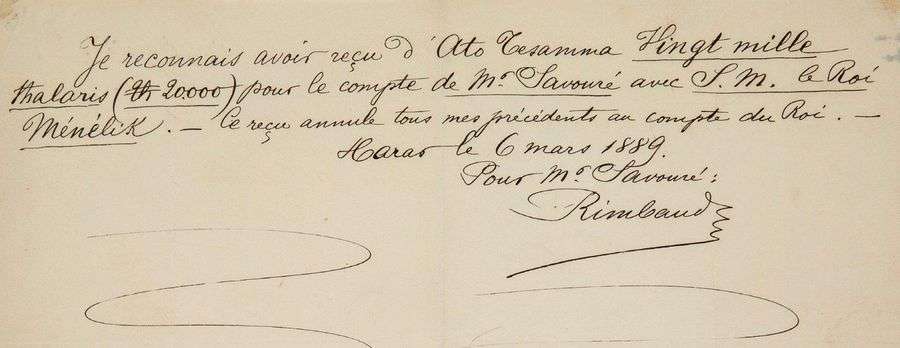 Je reconnais avoir reçu d'Ato Tesamma Vingt mille
thalaris (th 20.000) pour le compte de Mr Savouré avec S. M. le Roi
Ménélik. — Ce reçu annule tous mes précédents au compte du Roi. —
Harar le 6 mars 1889.
Pour Mr Savouré :
Rimbaud